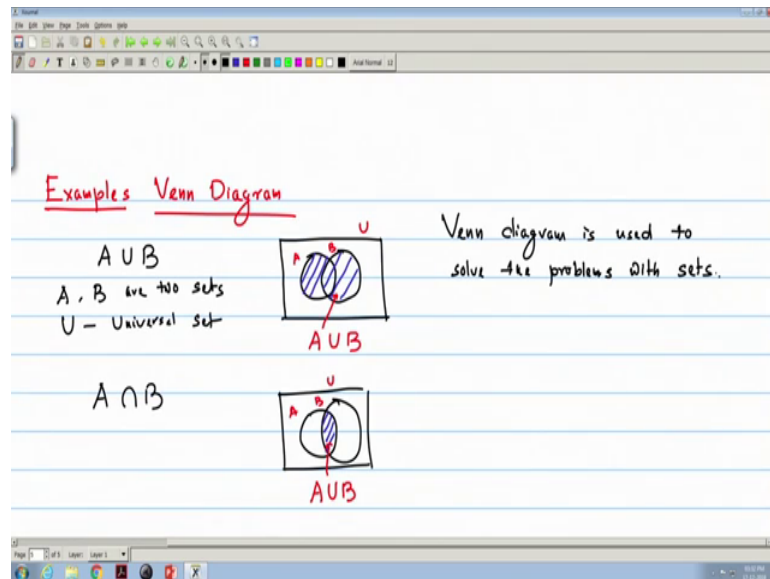 Journal
File Edit View Page Tools Options Help
Arial Normal 12
Examples Venn Diagram
A ∪ B
A, B are two sets
U - Universal set
U
A B
A ∪ B
Venn diagram is used to
solve the problems with sets.
A ∩ B
U
A B
A ∪ B
Page 5 of 5 Layer: Layer 1